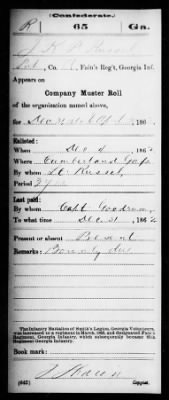 (Confederate.)
R 65 Ga.
J. K. P.
Co. Fain's Reg't, Georgia Inf.
Appears on
Company Muster Roll
of the organization named above,
for 186
Enlisted:
When Dec 186
Where Cumberland Gap
By whom Lt. Russell
Period 3 yrs
Last paid:
By whom Capt Goodrum
To what time Dec 31 186
Present or absent Present
Remarks: Bounty due
The Infantry Battalion of Smith's Legion, Georgia Volunteers,
was increased to a regiment in March, 1863, and designated Fain's
Regiment, Georgia Infantry, which subsequently became this
Regiment Georgia Infantry.
Book mark:
(642) Copyist.